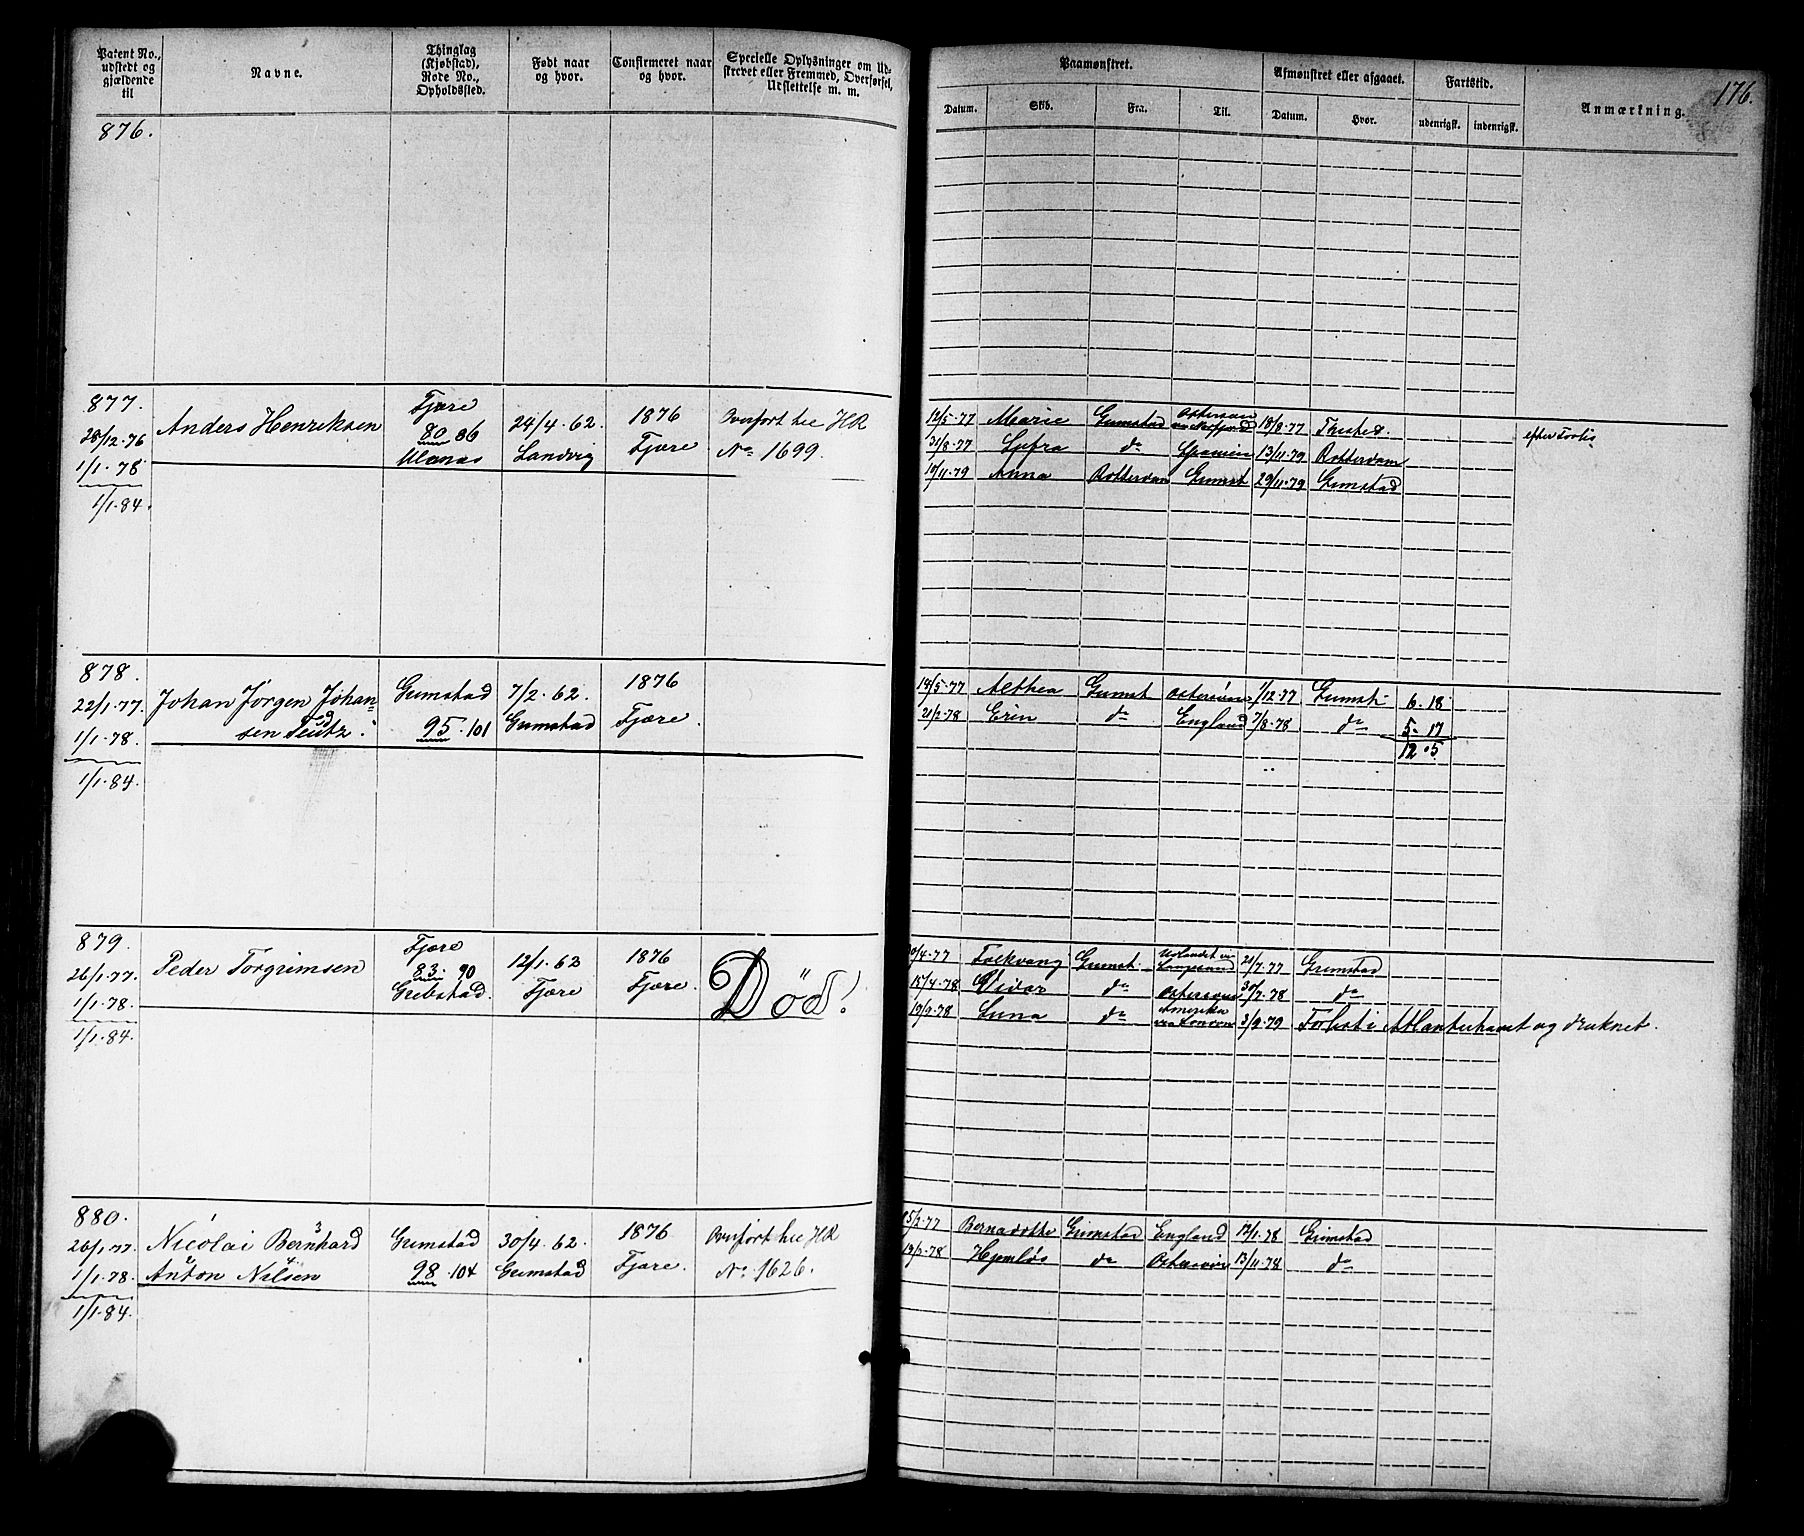 176.
Patent No., udstedt og gjældende til
Navne.
Thinglag (Kjøbstad), Rode No., Opholdssted.
Født naar og hvor.
Confirmeret naar og hvor.
Specielle Oplysninger om Udskrevet eller Fremmed, Overførsel, Udslettelse m. m.
Paamønstret.
Datum.
Skib.
Fra.
Til.
Afmønstret eller afgaaet.
Datum.
Hvor.
Fartstid.
udenrigsk.
indenrigsk.
Anmærkning.
876.
877.
28/12-76
1/1-78
1/1-84.
Anders Henriksen
Fjære
80 86
24/4-62.
Landvig
1876
Fjære
Overført til HR
No 1699.
12/5-77 Marie Grimstad Østersøen 18/8-77
31/8-77 do Spanien 13/11-79 Rotterdam
17/11-79 Anna Rotterdam Grimst 29/11-79 Grimstad
878.
22/1-77.
1/1-78.
1/1-84.
Johan Jørgen Johan-
sen
Grimstad
95.101
7/2-62.
Grimstad
1876
Fjære.
14/5-77 Aethea Grimst Østersøen 1/12-77 Grimst. 6-18
21/2-78 Erin do England 7/8-78 do 5-17
12-5
879.
26/1-77.
1/1-78.
1/1-84.
Peder Torgrimsen
Fjære
83. 90
Grebstad.
12/1-63
Fjære
1876
Fjære.
Død!
/4-77 Folkvang Grimst. 21/7-77 Grimstad
15/4-78 Vidar do Østersøen 30/7-78 do
19/9-78 Luna do Amerika 3/9-79 Forlist i Atlanterhavet og druknet.
880.
26/1-77.
1/1-78.
1/1-84.
Nicolai Bernhard
Anton Nilsen
Grimstad
98.104
30/4-62.
Grimstad
1876
Fjære.
Overført til HR
No 1626.
15/2-77 Bernadotte Grimstad England 12/1-78 Grimstad
19/2-78 Hjemløs do Østersøen 13/11-78 do